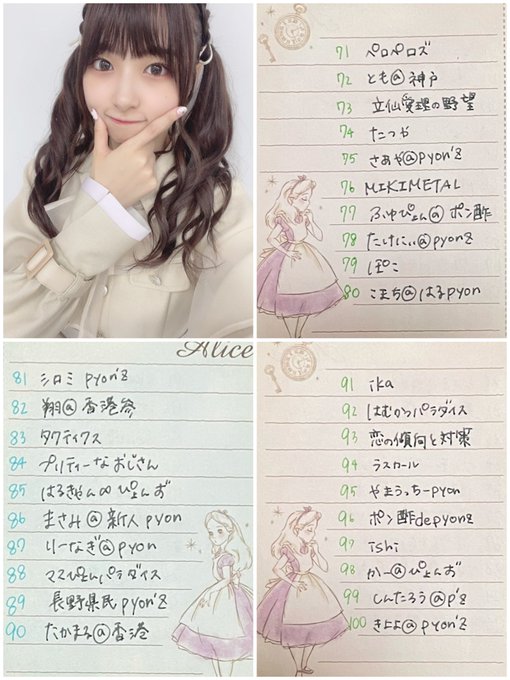 71 ペロペロズ
72 とも@神戸
73 立仙愛理の野望
74 たつや
75 さあや@pyon'z
76 MIKIMETAL
77 ふゆぴょん@ポン酢
78 たけにぃ@pyon'z
79 ぽこ
80 こまち@はるpyon
Alice
81 シロミ pyon'z
82 翔@香港爺
83 タクティクス
84 プリティーなおじさん
85 はるきゃん∞ぴょんず
86 まさみ@新人pyon
87 りーなぎ@pyon
88 マスぴょんパラダイス
89 長野県民pyon'z
90 たかまる@香港
91 ika
92 はむかつパラダイス
93 恋の傾向と対策
94 ラスカール
95 やまうっちーpyon
96 ポン酢depyonz
97 ishi
98 かー@ぴょんず
99 しんたろう@p'z
100 きよよ@pyon'z